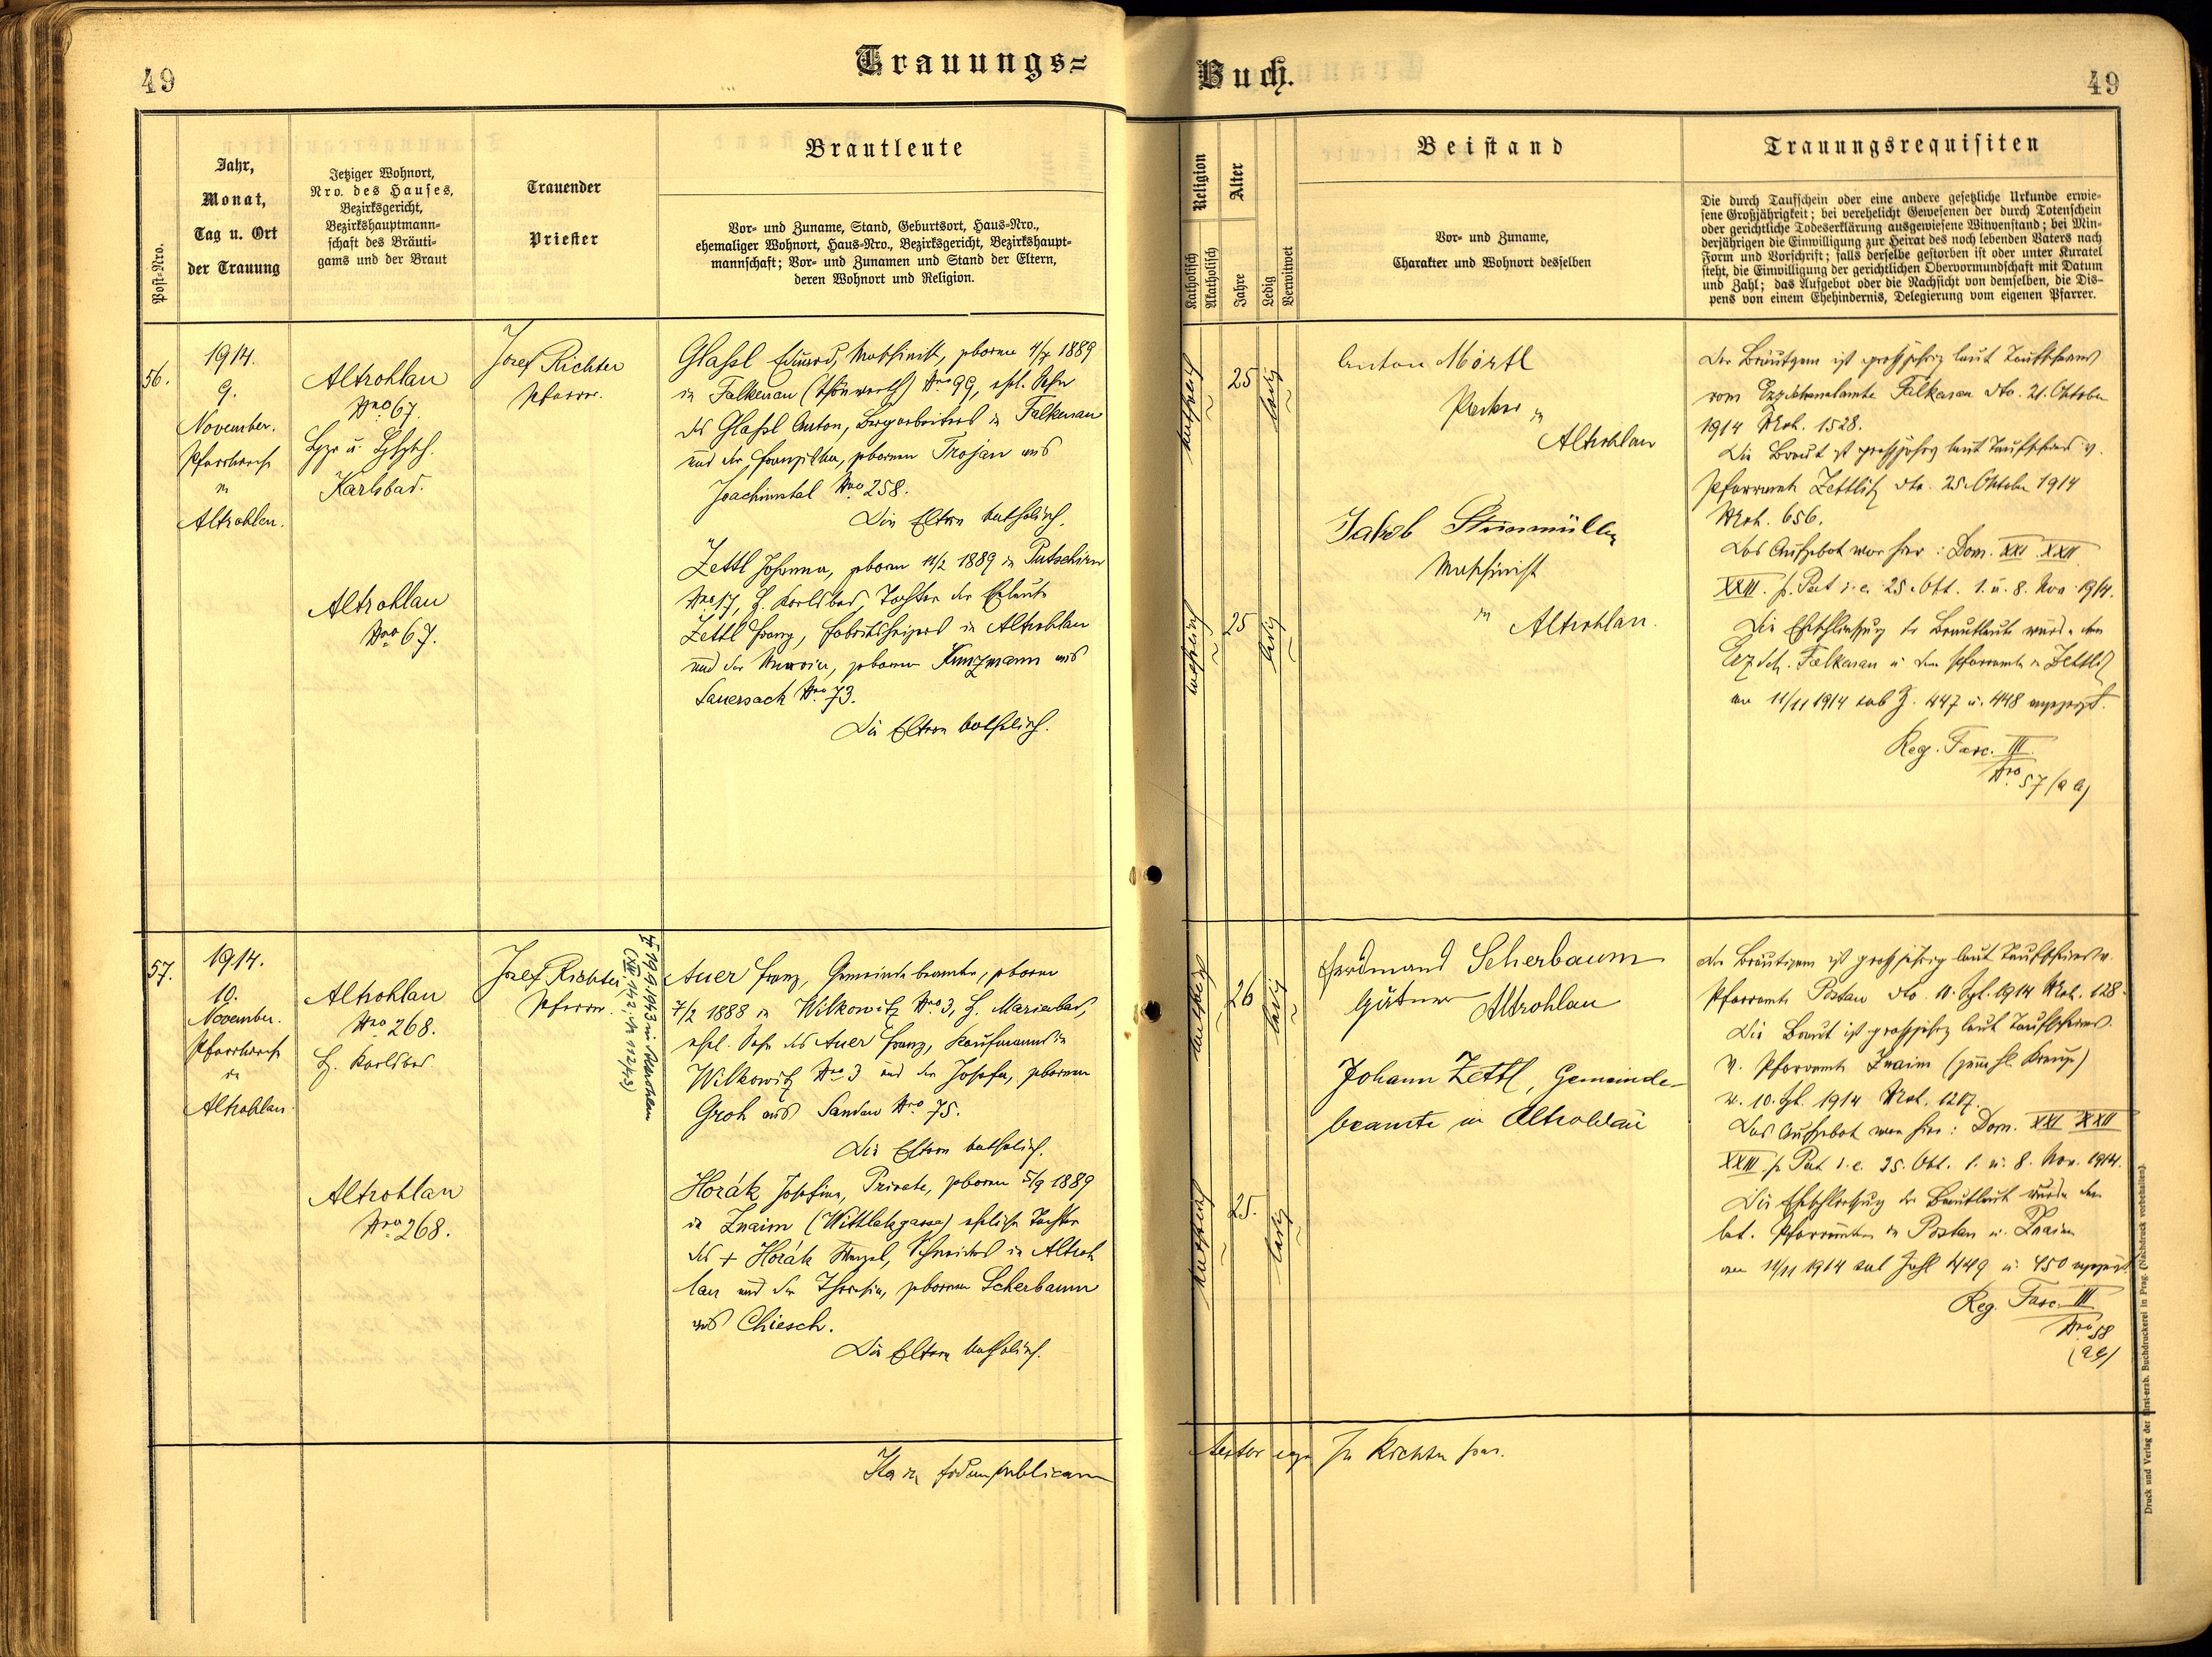 49
Trauungs=
Buch.
49
Post-Nro.
Jahr,
Monat,
Tag u. Ort
der Trauung
Jetziger Wohnort,
Nro. des Hauses,
Bezirksgericht,
Bezirkshauptmann-
schaft des Bräuti-
gams und der Braut
Trauender
Priester
Brautleute
Vor- und Zuname, Stand, Geburtsort, Haus-Nro.,
ehemaliger Wohnort, Haus-Nro., Bezirksgericht, Bezirkshaupt-
mannschaft; Vor- und Zunamen und Stand der Eltern,
deren Wohnort und Religion.
Religion
Katholisch
Akatholisch
Alter
Jahre
Ledig
Verwitwet
Beistand
Vor- und Zuname,
Charakter und Wohnort desselben
Trauungsrequisiten
Die durch Taufschein oder eine andere gesetzliche Urkunde erwie-
sene Großjährigkeit; bei verehelicht Gewesenen der durch Totenschein
oder gerichtliche Todeserklärung ausgewiesene Witwenstand; bei Min-
derjährigen die Einwilligung zur Heirat des noch lebenden Vaters nach
Form und Vorschrift; falls derselbe gestorben ist oder unter Kuratel
steht, die Einwilligung der gerichtlichen Obervormundschaft mit Datum
und Zahl; das Aufgebot oder die Nachsicht von demselben, die Dis-
pens von einem Ehehindernis, Delegierung vom eigenen Pfarrer.
56.
1914.
9.
November.
Pfarrkirche
in
Altrohlau.
Altrohlau
Nro 67.
Karlsbad.
Altrohlau
Nro 67.
Josef Richter
Pfarrer.
Glaßl Eduard, Maschinist, geboren 4/7 1889
in Falkenau (Schönwerth) Nro 99, ehl. Sohn
des Glaßl Anton, Bergarbeiters in Falkenau
und der Franziska, geborenen Trojan aus
Joachimstal Nro 258.
Die Eltern katholisch.
Zettl Johanna, geboren 11/2 1889 in Putschirn
Nro 17, B. Karlsbad, Tochter der Eheleute
Zettl Franz, Fabriksheizers in Altrohlau
und der Maria, geborenen Kunzmann aus
Sauersack Nro 73.
Die Eltern katholisch.
katholisch
25
ledig
katholisch
25
ledig
Anton Mörtl
in
Altrohlau
Jakob
Maschinist
in Altrohlau.
Der Bräutigam ist großjährig laut Taufscheines
vom Erzdechanatamte Falkenau dto. 21. Oktober
1914 Nroh. 1528.
Die Braut ist großjährig laut Taufscheines v.
Pfarramte Zettlitz dto. 25. Oktober 1914
Nroh. 656.
Das Aufgebot war hier: Dom. XXI XXII
XXIII. p. Pent i. e. 25. Okt. 1. u. 8. Nov. 1914.
Die Eheschließung der Brautleute wurde dem
Erzdech. Falkenau u. dem Pfarramte in Zettlitz
am 11/11 1914 sub Z. 447 u. 448 angezeigt.
Reg. Fasc. III
Nro 57 (a b)
57.
1914.
10.
November.
Pfarrkirche
in
Altrohlau.
Altrohlau
Nro 268.
B. Karlsbad
Altrohlau
Nro 268.
Josef Richter,
Pfarrer.
1943 in Altrohlau
(XII, 142, Nr 112/43)
Auer Franz, Gemeindebeamter, geboren
7/2 1888 in Wilkowitz Nro 3, B. Marienbad,
ehel. Sohn des Auer Franz, Kaufmanns in
Wilkowitz Nro 3 und der Josefa, geborenen
Groh aus Sandau Nro 75.
Die Eltern katholisch.
Horák Josefine, Private, geboren 5/9 1889
in Znaim (Wittlatzgasse) eheliche Tochter
des + Horák Wenzel, Schneiders in Altroh
lau und der Theresia, geborenen Scherbaum
aus Chiesch.
Die Eltern katholisch.
katholisch
26
ledig
katholisch
25.
ledig
Ferdinand Scherbaum
Gärtner Altrohlau
Johann Zettl, Gemeinde-
beamte in Altrohlau
Der Bräutigam ist großjährig laut Taufscheines v.
Pfarramte 1914 Nroh. 128.
Die Braut ist großjährig laut Taufscheines
v. Pfarramte Znaim (zum hl. Kreuz)
v. 10. 1914 Nroh. 1217.
Das Aufgebot war hier: Dom. XXI XXII
XXIII p. Pent i. e. 25. Okt. 1. u. 8. Nov. 1914.
Die Eheschließung der Brautleute wurde den
Pfarrämtern in u. Znaim
am 11/11 1914 sub Zahl 449 u. 450 angezeigt
Reg. Fasc. III
Nro 58
(a b)
Ita in fidem publicam
testor ego Jos Richter par.
Druck und Verlag der fürst-erzb. Buchdruckerei in Prag. (Nachdruck vorbehalten).